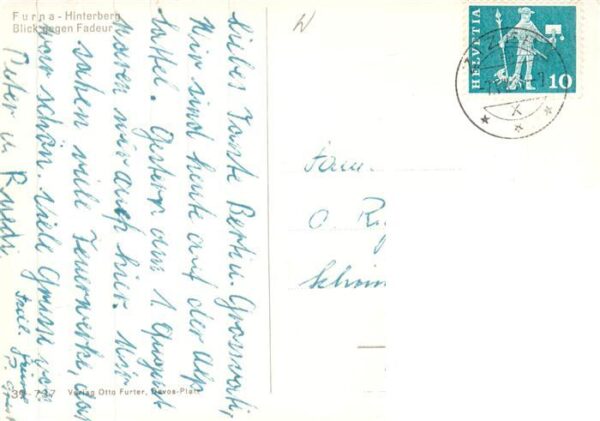 Furna - Hinterberg
Blick gegen Fadeur
Liebes Tante Berti u. Grossvati,
Wir sind heute auf der Alp
Gestern am 1. August
waren wir auch hier. Wir
sahen viele Feuerwerke, das
war schön. Viele Grüsse von
Peter u. Ruedi
HELVETIA
10
Fam.
O.
39-727 Verlag Otto Furter, Davos-Platz